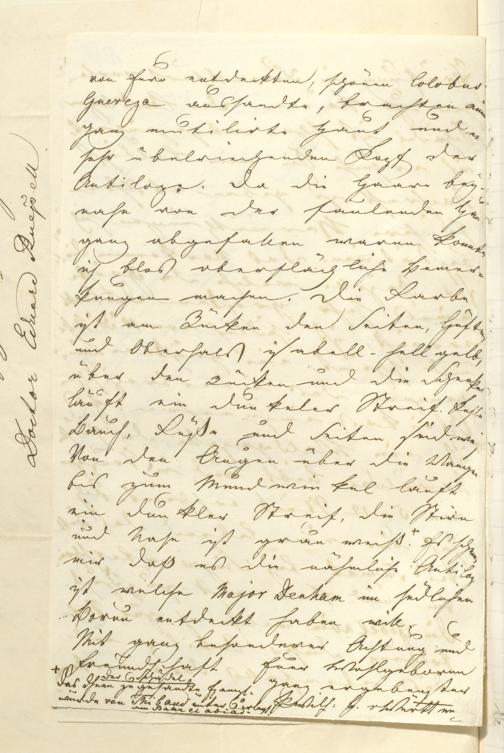 von Euro entdeckten, schönen Colobus
Guereza aussandte, brachten eine
ganz mutilirte Haut und
sehr übelriechenden Kopf der
Antilope. Da die Haare bey-
nahe von der faulenden Haut
ganz abgefallen waren konnte
ich blos oberflächliche Bemer-
kungen machen. Die Farbe
ist am Rücken den Seiten, Hüften
und Oberhals isabell-hellgelb,
über den Rücken und die Schenkel
läuft ein dunkeler Streif.
Bauch, Füße und Seiten sind
Von den Augen über die Wange
bis zum Mundwinkel läuft
ein dunkler Streif, die Stirn
und Nase ist grau weiß.+ Es scheint
mir daß es die nähmliche Antilope
ist welche Major Denham im südlichen
Bornu entdeckt haben will.
Mit ganz besonderer Achtung und
Freundschaft Euer Wohlgeboren
ganz ergebenster
+ der Schädel
Das Ihnen zugesandte
wurde von
Doctor Eduard Rüppell